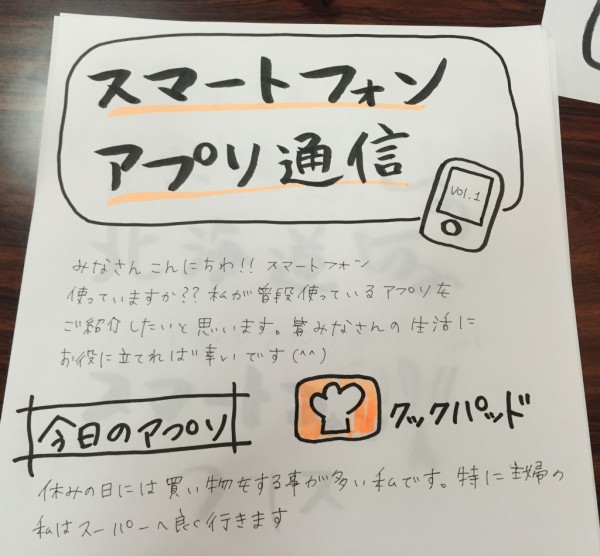 スマートフォン
アプリ通信
VOL.1
みなさん こんにちわ!! スマートフォン
使っていますか?? 私が普段使っているアプリを
ご紹介したいと思います。皆みなさんの生活に
お役に立てれば幸いです(^^)
今日のアプリ
クックパッド
休みの日には買い物をする事が多い私です。特に主婦の
私はスーパーへ良く行きます